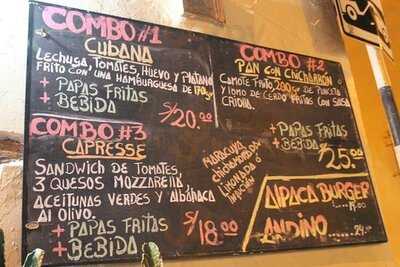 COMBO #1
CUBANA
LECHUGA, TOMATES, HUEVO Y PLATANO
FRITO CON UNA HAMBURGUESA DE 170gr
+ PAPAS FRITAS
+ BEBIDA
S/20.00
COMBO #2
PAN CON CHICHARRÓN
CAMOTE FRITO, 200gr DE PANCETA
Y LOMO DE CERDO FRITAS CON SALSA
CRIOLLA
+ PAPAS FRITAS
+ BEBIDA
S/25.00
COMBO #3
CAPRESSE
SANDWICH DE TOMATES,
3 QUESOS MOZZARELLA,
ACEITUNAS VERDES Y ALBAHACA
AL OLIVO.
+ PAPAS FRITAS
+ BEBIDA
S/18.00
MARACUYA
CHICHAMORADA
LIMONADA Ó
INFUSIÓN
ALPACA BURGER
ANDINO